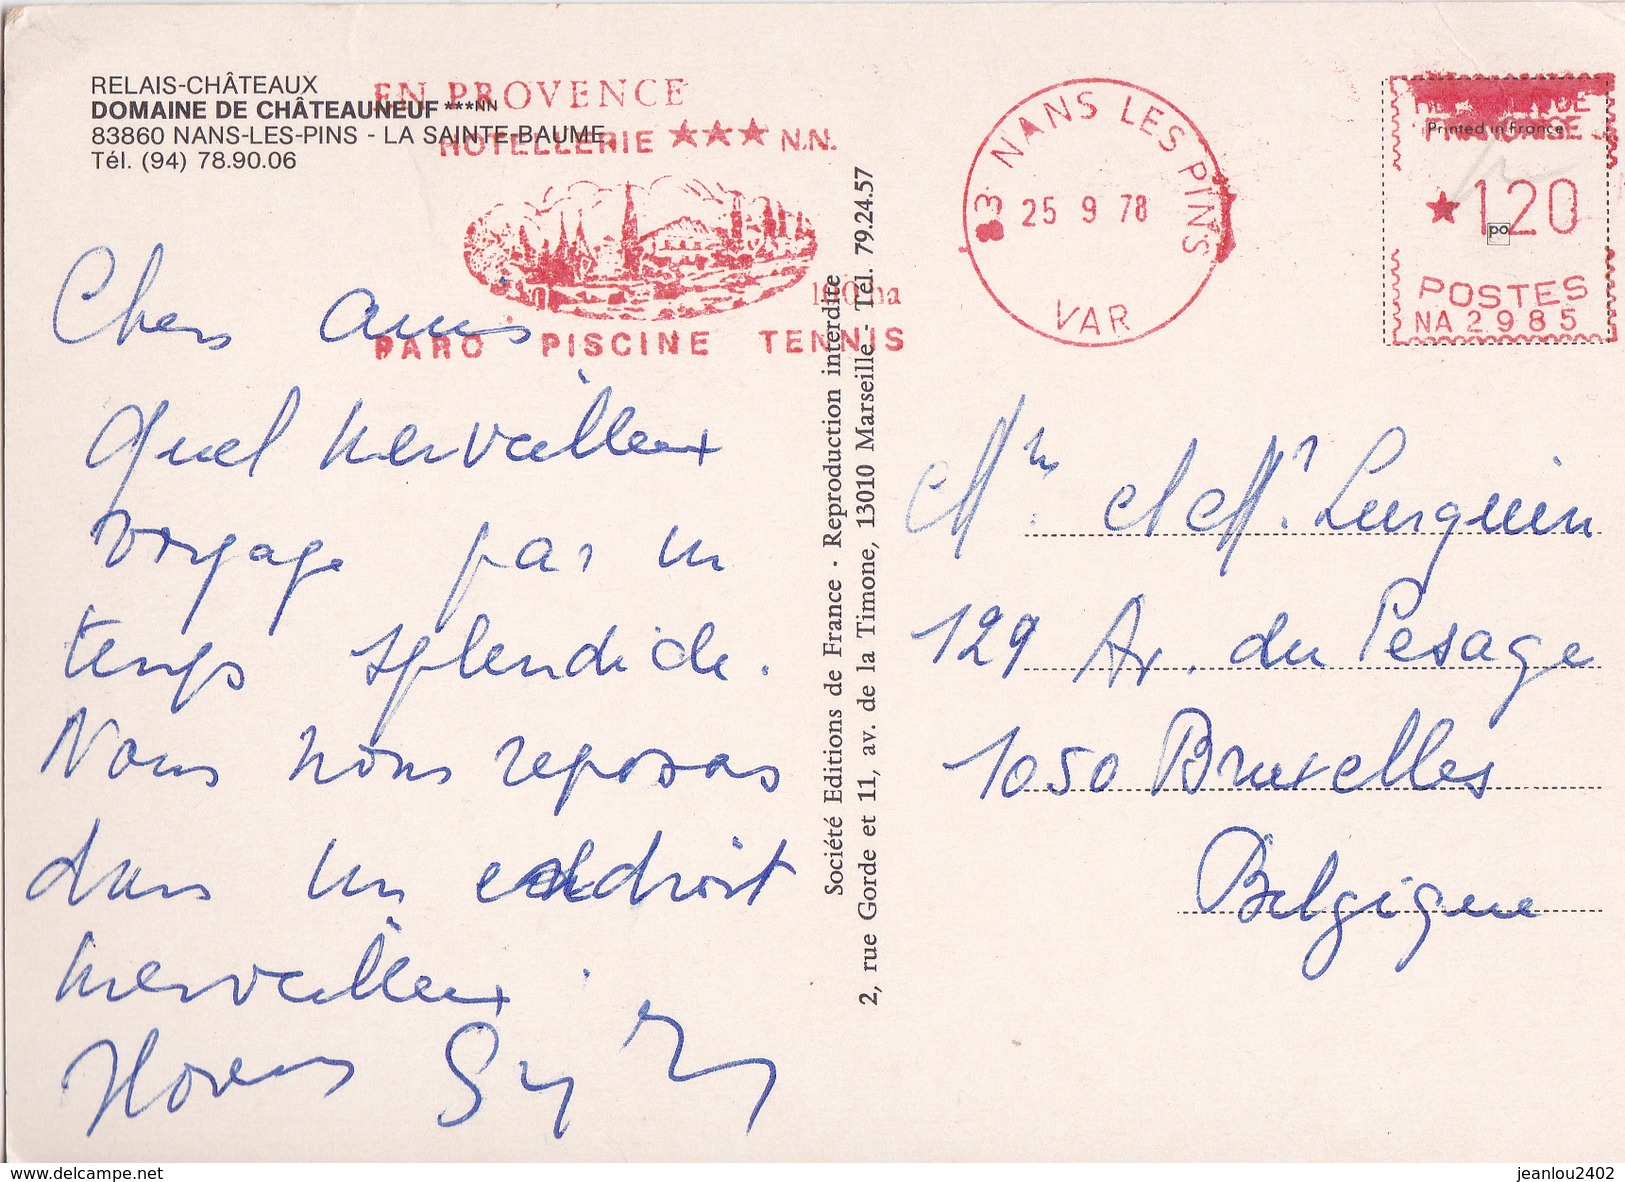 RELAIS-CHÂTEAUX
DOMAINE DE CHÂTEAUNEUF ***NN
83860 NANS-LES-PINS - LA SAINTE-BAUME
Tél. (94) 78.90.06
EN PROVENCE
HOTELLERIE ★★★ N.N.
PARC PISCINE TENNIS
83 NANS LES PINS
25 9 78
VAR
Printed in France
★120
po
POSTES
NA 2985
Chers amis
Quel merveilleux
voyage par un
temps splendide.
Nous nous reposons
dans un endroit
merveilleux.
Société Editions de France - Reproduction interdite
2, rue Gorde et 11, av. de la Timone, 13010 Marseille - Tél. 79.24.57
Mm et Mr Lurquin
129 Av. du Pesage
1050 Bruxelles
Belgique
delcampe.net
jeanlou2402